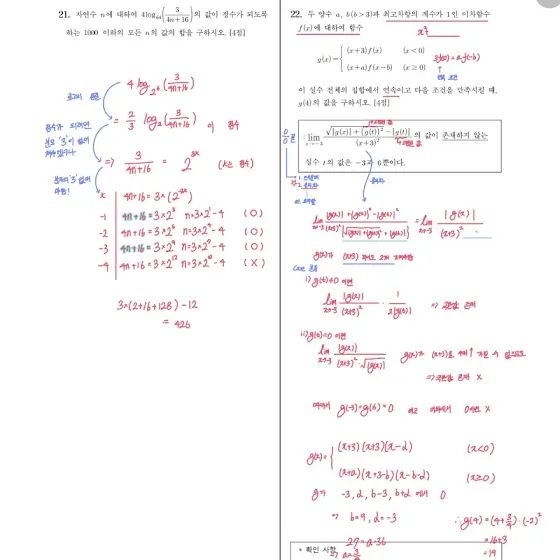 21. 자연수 n에 대하여 4log₆₄(3/(4n+16))의 값이 정수가 되도록
하는 1000 이하의 모든 n의 값의 합을 구하시오. [4점]
4 log_{2^6} (3/(4n+16))
= 2/3 log₂(3/(4n+16)) 이 정수
⇒ 3/(4n+16) = 2^{3k} (k는 정수)
4n+16 = 3×(2^{-3k})
-1 4n+16 = 3×2³ n=3×2¹-4 (O)
-2 4n+16 = 3×2⁶ n=3×2⁴-4 (O)
-3 4n+16 = 3×2⁹ n=3×2⁷-4 (O)
-4 4n+16 = 3×2¹² n=3×2¹⁰-4 (X)
3×(2+16+128) -12
= 426
22. 두 양수 a, b(b>3)과 최고차항의 계수가 1인 이차함수
f(x)에 대하여 함수
g(x)= { (x+3)f(x) (x<0)
(x+a)f(x-b) (x≥0)
이 실수 전체의 집합에서 연속이고 다음 조건을 만족시킬 때,
g(4)의 값을 구하시오. [4점]
lim_{x→-3} (√(|g(x)|+{g(t)}²)-|g(t)|)/(x+3)² 의 값이 존재하지 않는
실수 t의 값은 -3과 6뿐이다.
lim_{x→-3} (|g(x)|+{g(t)}²-|g(t)|²)/((x+3)²{√(|g(x)|+{g(t)}²)+|g(t)|}) = lim_{x→-3} |g(x)|/(x+3)²
i) g(t)≠0 이면
lim_{x→-3} |g(x)|/(x+3)² · 1/(2|g(t)|) ⇒ 극한값 존재
ii) g(t)=0 이면
lim_{x→-3} |g(x)|/((x+3)²·√|g(x)|)
⇒ 극한값 존재 X
따라서 g(-3)=g(6)=0
g(x)= { (x+3)(x+3)(x-α) (x<0)
(x+a)(x+3-b)(x-b-α) (x≥0)
g가 -3, α, b-3, b+α 에서 0
⇒ b=9, α=-3
27 = a·36
⇒ a=3/4
∴ g(4) = (4+3/4)·(-2)²
= 16+3
= 19
* 확인 사항